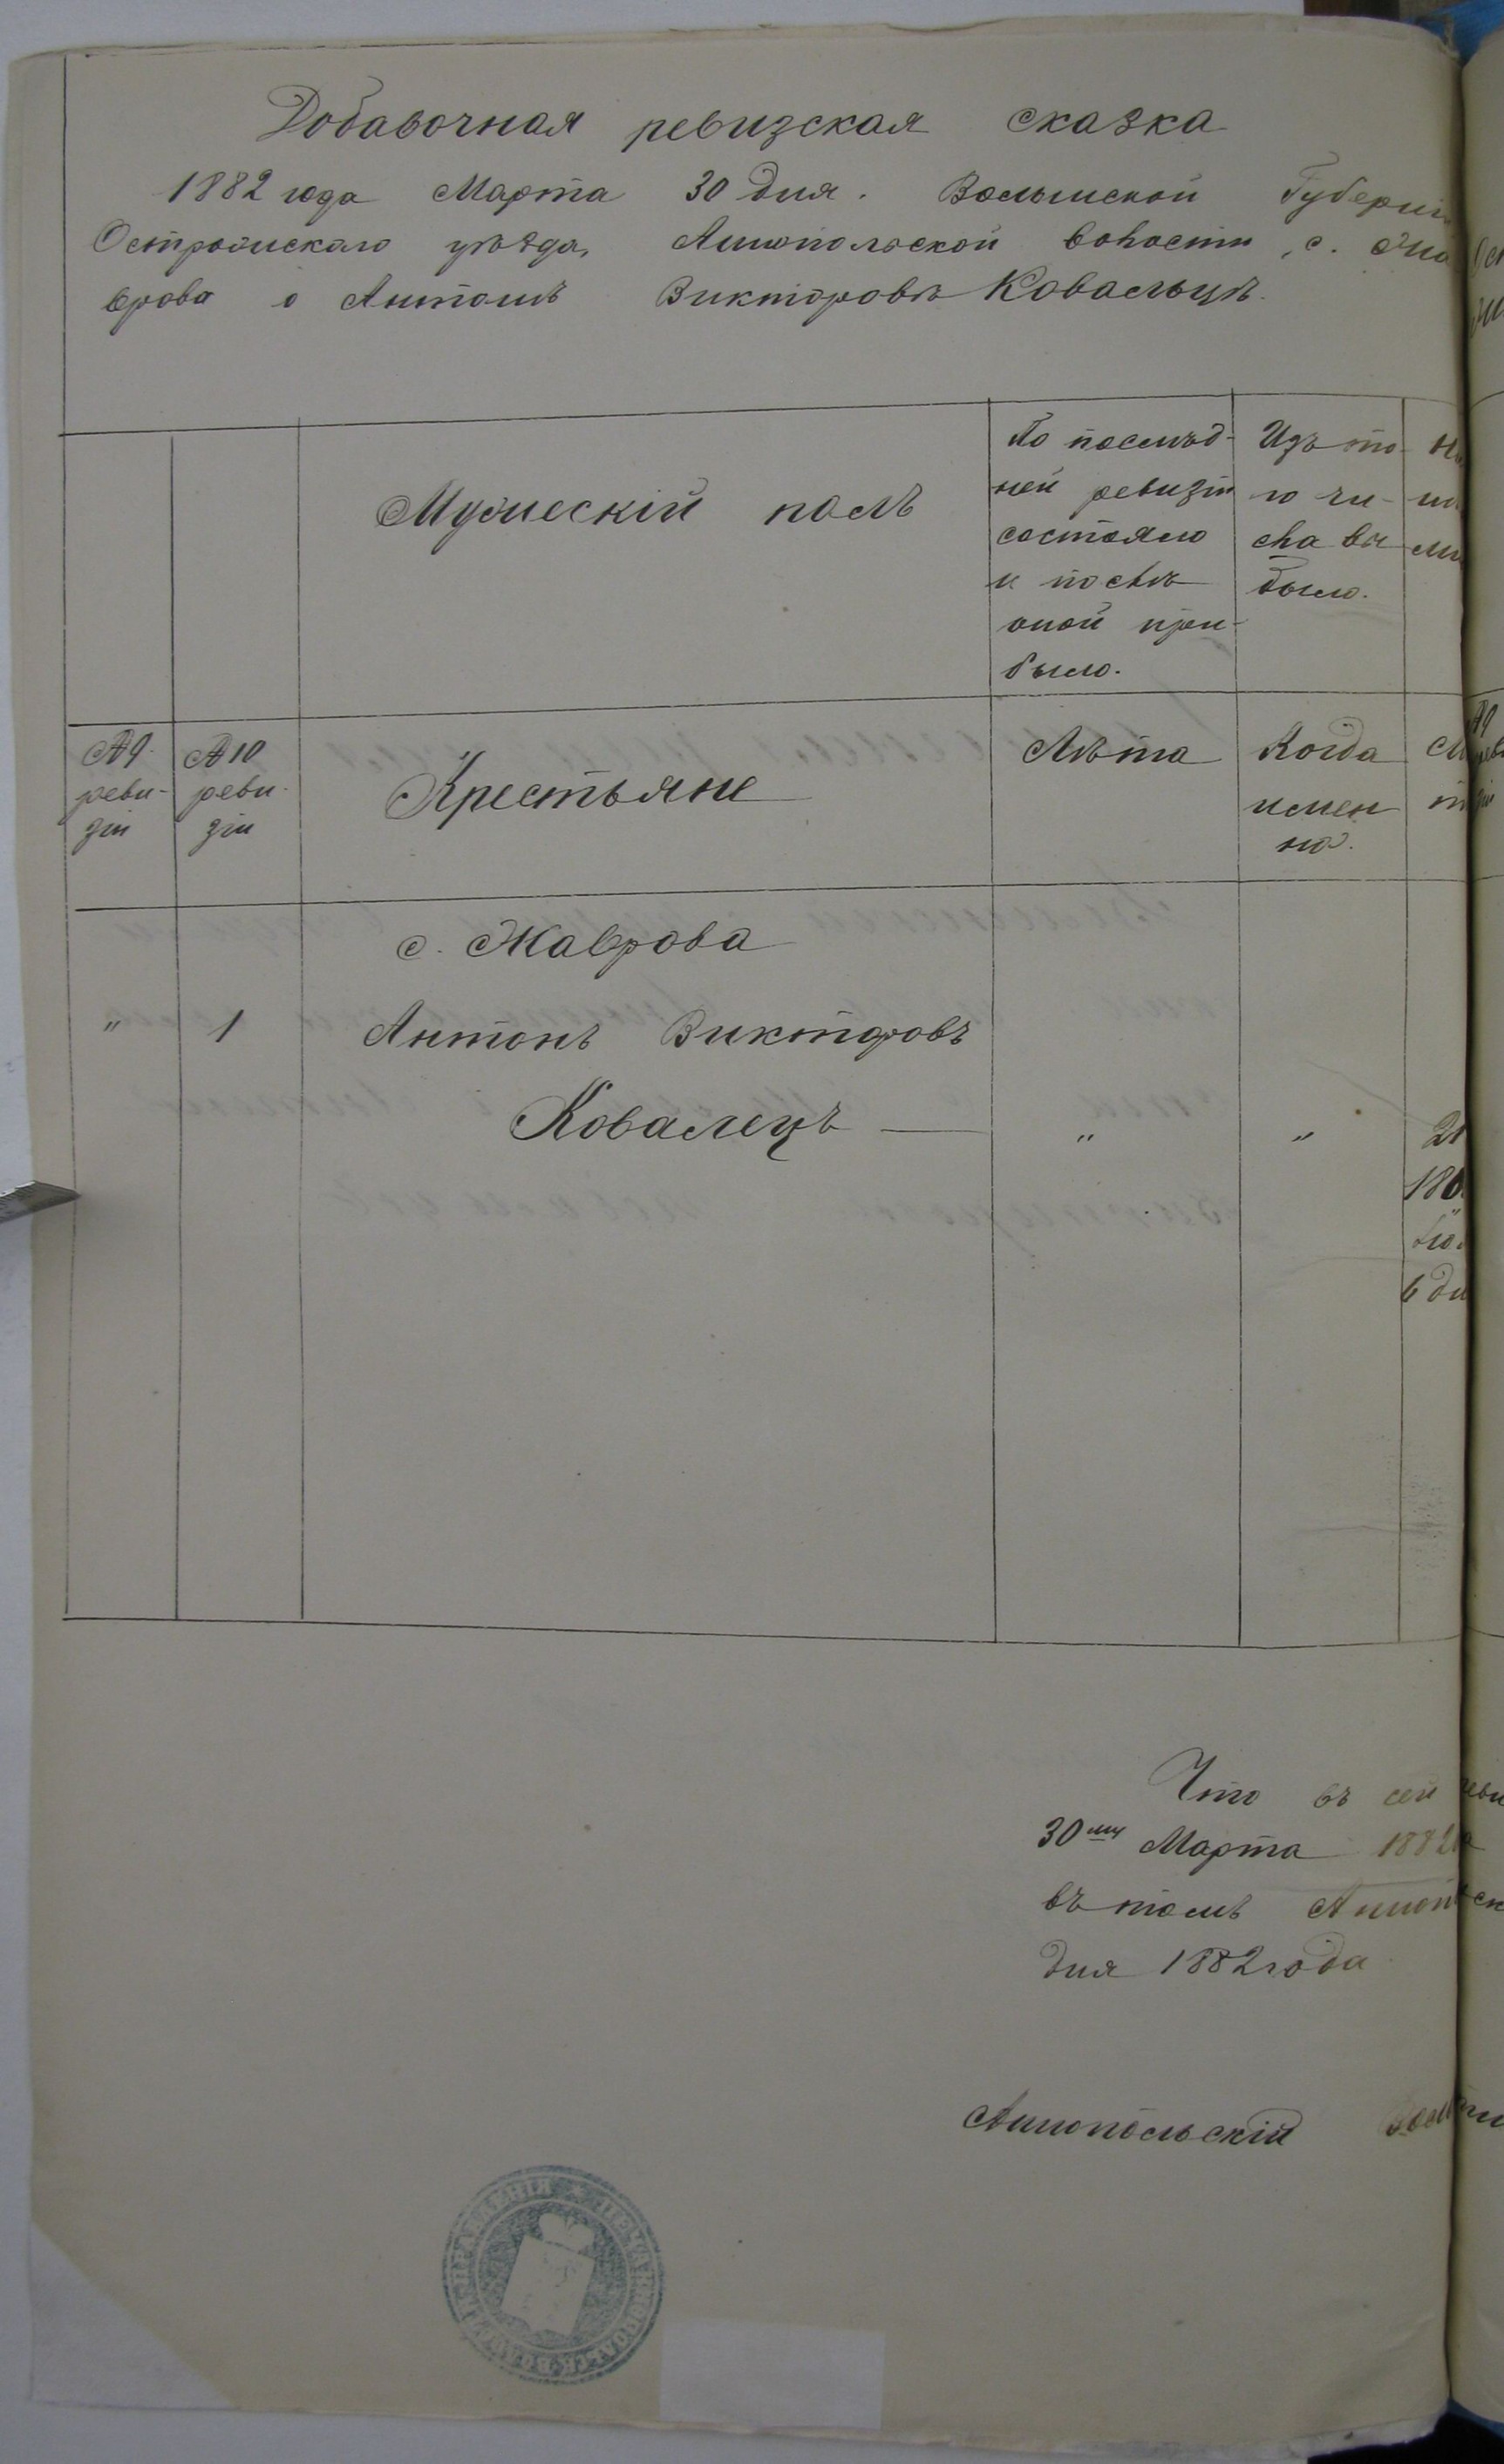 Добавочная ревизская сказка
1882 года Марта 30 дня. Волынской Губерніи
Острожскаго уѣзда, Аннопольской волости, с. Жа
врова о Антонѣ Викторовѣ Ковальцѣ.
Мужескій полъ
По послѣд-
ней ревизіи
состояло
и послѣ
оной при-
было.
Изъ то-
го чи-
сла вы
было.
№ 9
реви-
зіи
№ 10
реви-
зіи
Крестьяне
Лѣта
Когда
имен
но.
с. Жаврова
" 1 Антонъ Викторовъ
Ковалецъ — " " 21
186
6 дн
Что въ сей
30го Марта 1882
въ томъ Анноп
дня 1882 года
Аннопольскій Волост